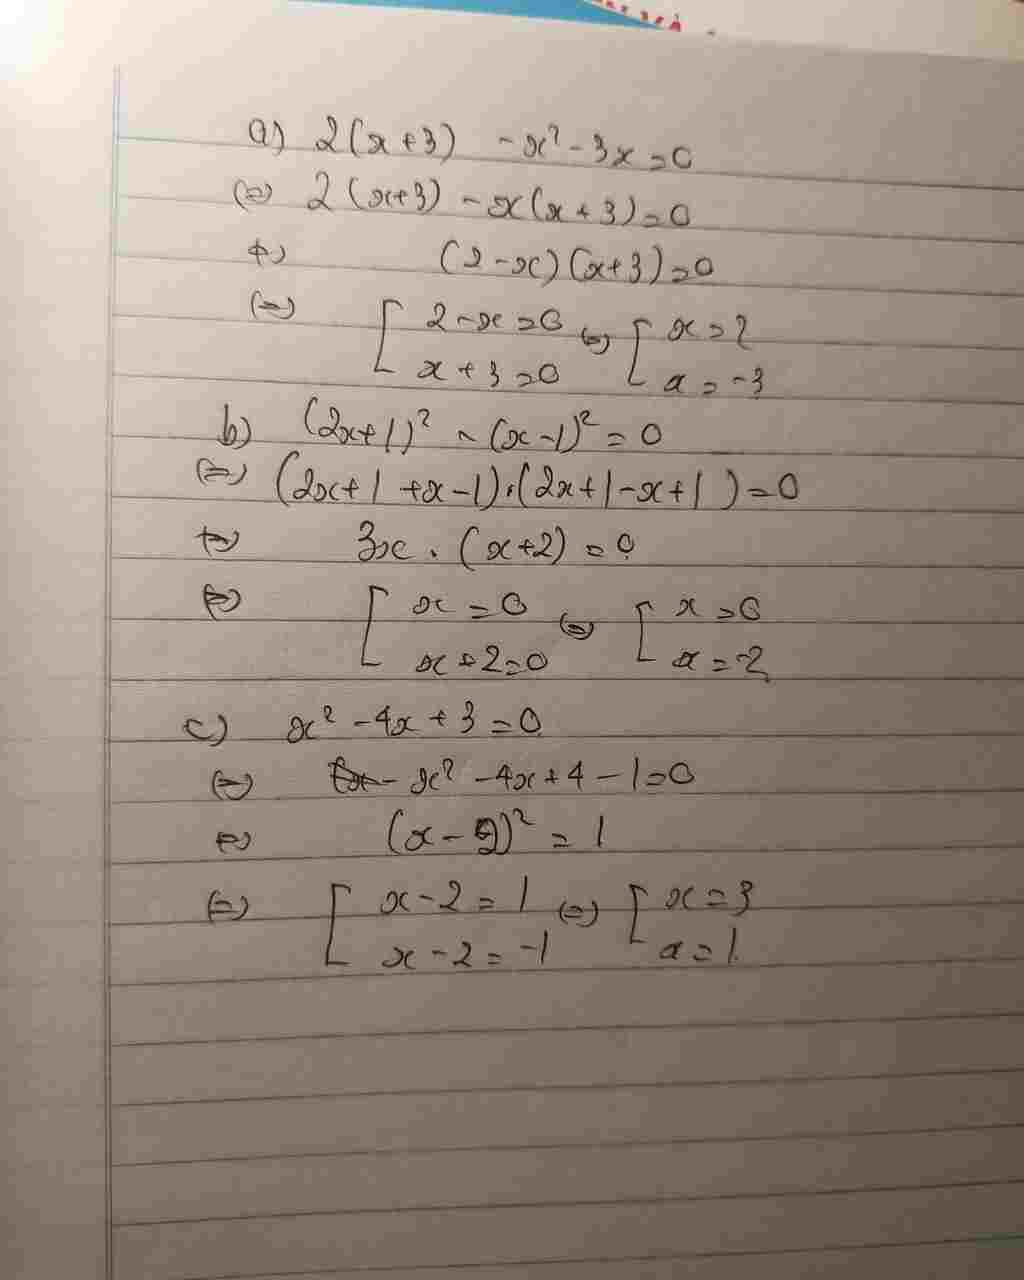 a) 2(x+3) -x² -3x=0
(=) 2(x+3) -x(x+3)=0
(=) (2-x)(x+3)=0
(=) [ 2-x=0 (=) [ x=2
x+3=0 x=-3
b) (2x+1)² - (x-1)² = 0
(=) (2x+1+x-1).(2x+1-x+1)=0
(=) 3x . (x+2) = 0
(=) [ x=0 (=) [ x=0
x+2=0 x=-2
c) x² -4x+3=0
(=) x² -4x+4-1=0
(=) (x-2)² = 1
(=) [ x-2=1 (=) [ x=3
x-2=-1 x=1